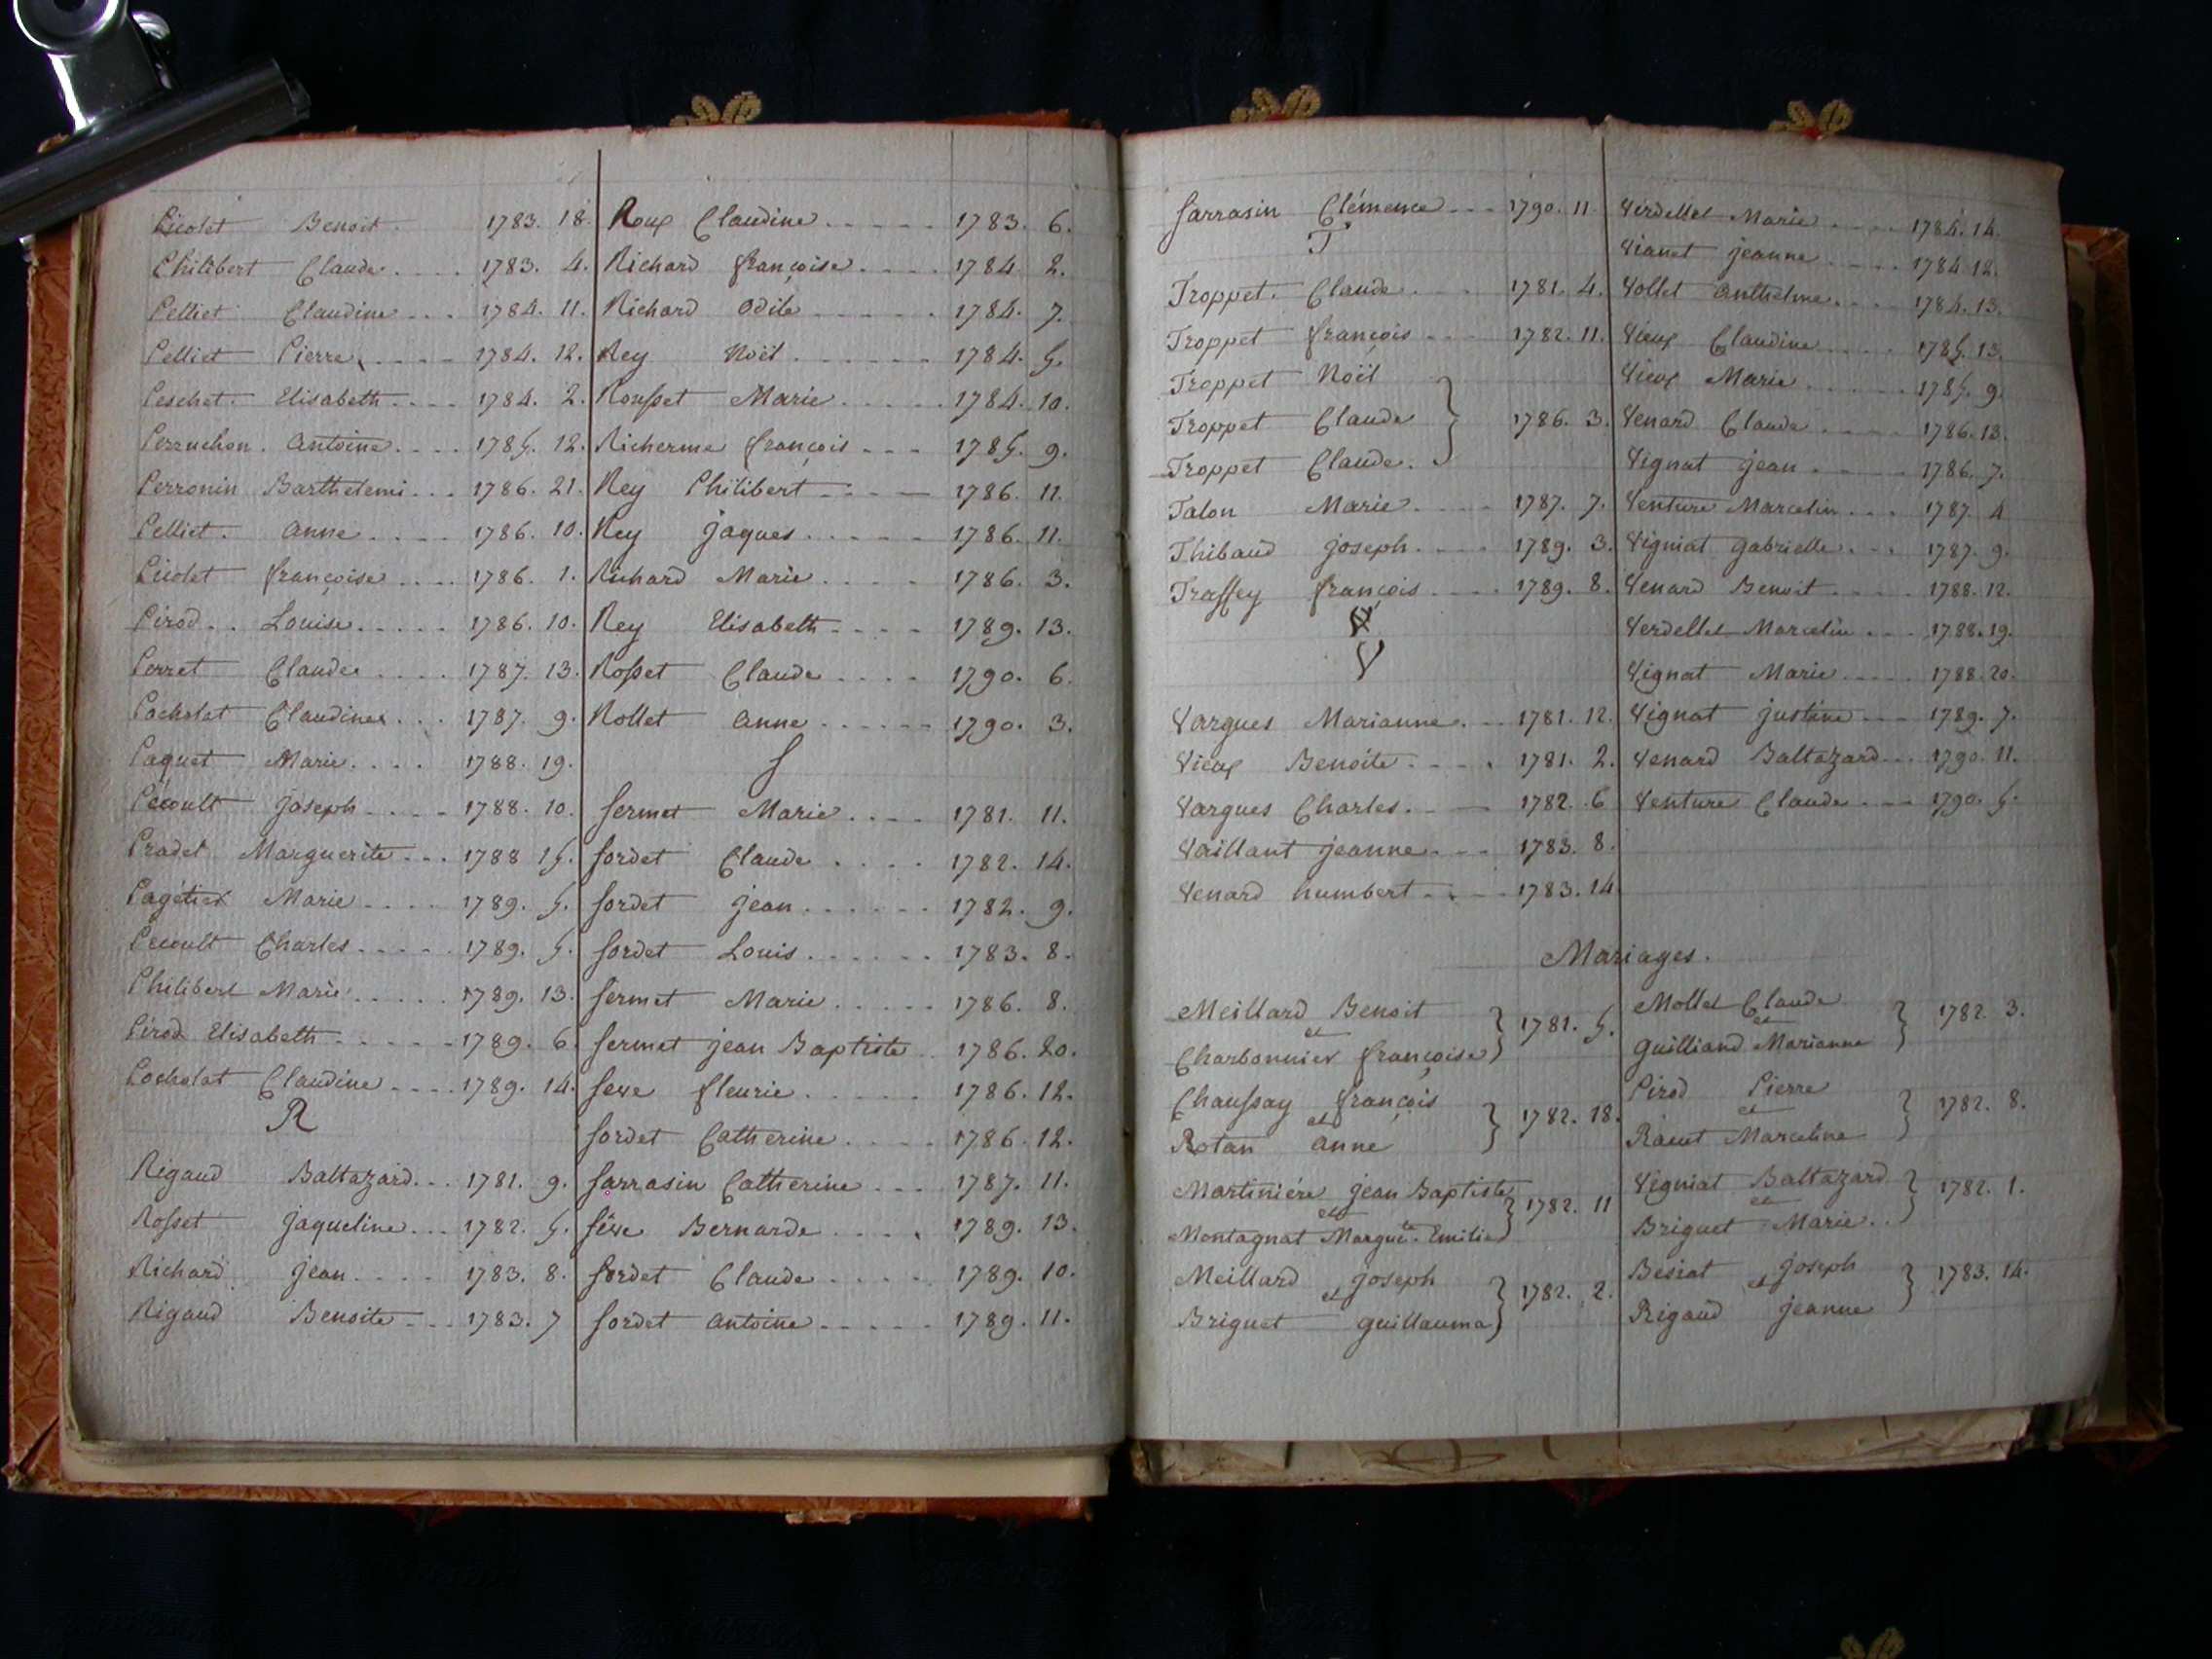 Picolet Benoit. 1783. 18.
Philibert Claude.... 1783. 4.
Pelliet Claudine... 1784. 11.
Pelliet Pierre.... 1784. 12.
Peschet. Elisabeth.... 1784. 2.
Perruchon. antoine.... 1785. 12.
Perronin Barthelemi... 1786. 21.
Pelliet. anne.... 1786. 10.
Picolet françoise.... 1786. 1.
Pirod.. Louise..... 1786. 10.
Perret Claude.... 1787. 13.
Pacholat Claudine... 1787. 9.
Paquet Marie.... 1788. 19.
Pécoult joseph.... 1788. 10.
Pradel Marguerite... 1788 15.
Pagétiet Marie.... 1789. 5.
Pecoult Charles..... 1789. 5.
Philibert Marie..... 1789. 13.
Pirod Elisabeth..... 1789. 6.
Pocholat Claudine.... 1789. 14.
R
Rigaud Baltazard... 1781. 9.
Rosset jaqueline... 1782. 5.
Richard jean.... 1783. 8.
Rigaud Benoite... 1783. 7
Roux Claudine..... 1783. 6.
Richard françoise.... 1784. 2.
Richard odile..... 1784. 7.
Rey Noël...... 1784. 5.
Rousset Marie..... 1784. 10.
Richerme françois... 1785. 9.
Rey Philibert.... 1786. 11.
Rey jaques..... 1786. 11.
Richard Marie.... 1786. 3.
Rey Elisabeth.... 1789. 13.
Rosset Claude.... 1790. 6.
Rollet anne...... 1790. 3.
S
Sermet Marie.... 1781. 11.
Sordet Claude.... 1782. 14.
Sordet jean...... 1782. 9.
Sordet Louis...... 1783. 8.
Sermet Marie..... 1786. 8.
Sermet jean Baptiste.. 1786. 20.
Seve fleurie..... 1786. 12.
Sordet Catherine.... 1786. 12.
Sarrasin Catherine... 1787. 11.
Sève Bernarde.... 1789. 13.
Sordet Claude.... 1789. 10.
Sordet antoine..... 1789. 11.
Sarrasin Clémence... 1790. 11.
T
Troppet. Claude... 1781. 4.
Troppet françois... 1782. 11.
Troppet Noël
Troppet Claude } 1786. 3.
Troppet Claude.
Talon Marie.... 1787. 7.
Thibaud joseph.... 1789. 3.
Traffey françois.... 1789. 8.
V
Vargues Marianne... 1781. 12.
Vieux Benoite.... 1781. 2.
Vargues Charles... 1782. 6
Vaillant jeanne... 1783. 8.
Venard humbert.... 1783. 14
Verdellet Marie.... 1784. 14.
Vianet jeanne.... 1784. 12.
Vollet anthelme.... 1784. 13.
Vieux Claudine.... 1785. 13.
Vieux Marie..... 1785. 9.
Venard Claude.... 1786. 13.
Vignat jean.... 1786. 7.
Venture Marcelin... 1787. 4
Vigniat gabrielle... 1787. 9.
Venard Benoit.... 1788. 12.
Verdellet Marcelin... 1788. 19.
Vignat Marie.... 1788. 20.
Vignat justine... 1789. 7.
Venard Baltazard... 1790. 11.
Venture Claude... 1790. 5.
Mariages.
Meillard Benoit
et } 1781. 5.
Charbonnier françoise
Chaussay françois
et } 1782. 18.
Rotan anne
Martinière jean Baptiste
et } 1782. 11
Montagnat Margue.te Emilie
Meillard joseph
et } 1782. 2.
Briguet guillauma
Mollet Claude
et } 1782. 3.
guilliand Marianne
Pirod Pierre
et } 1782. 8.
Marceline
Vigniat Baltazard
et } 1782. 1.
Briguet Marie..
Besrat joseph
et } 1783. 14.
Rigaud jeanne